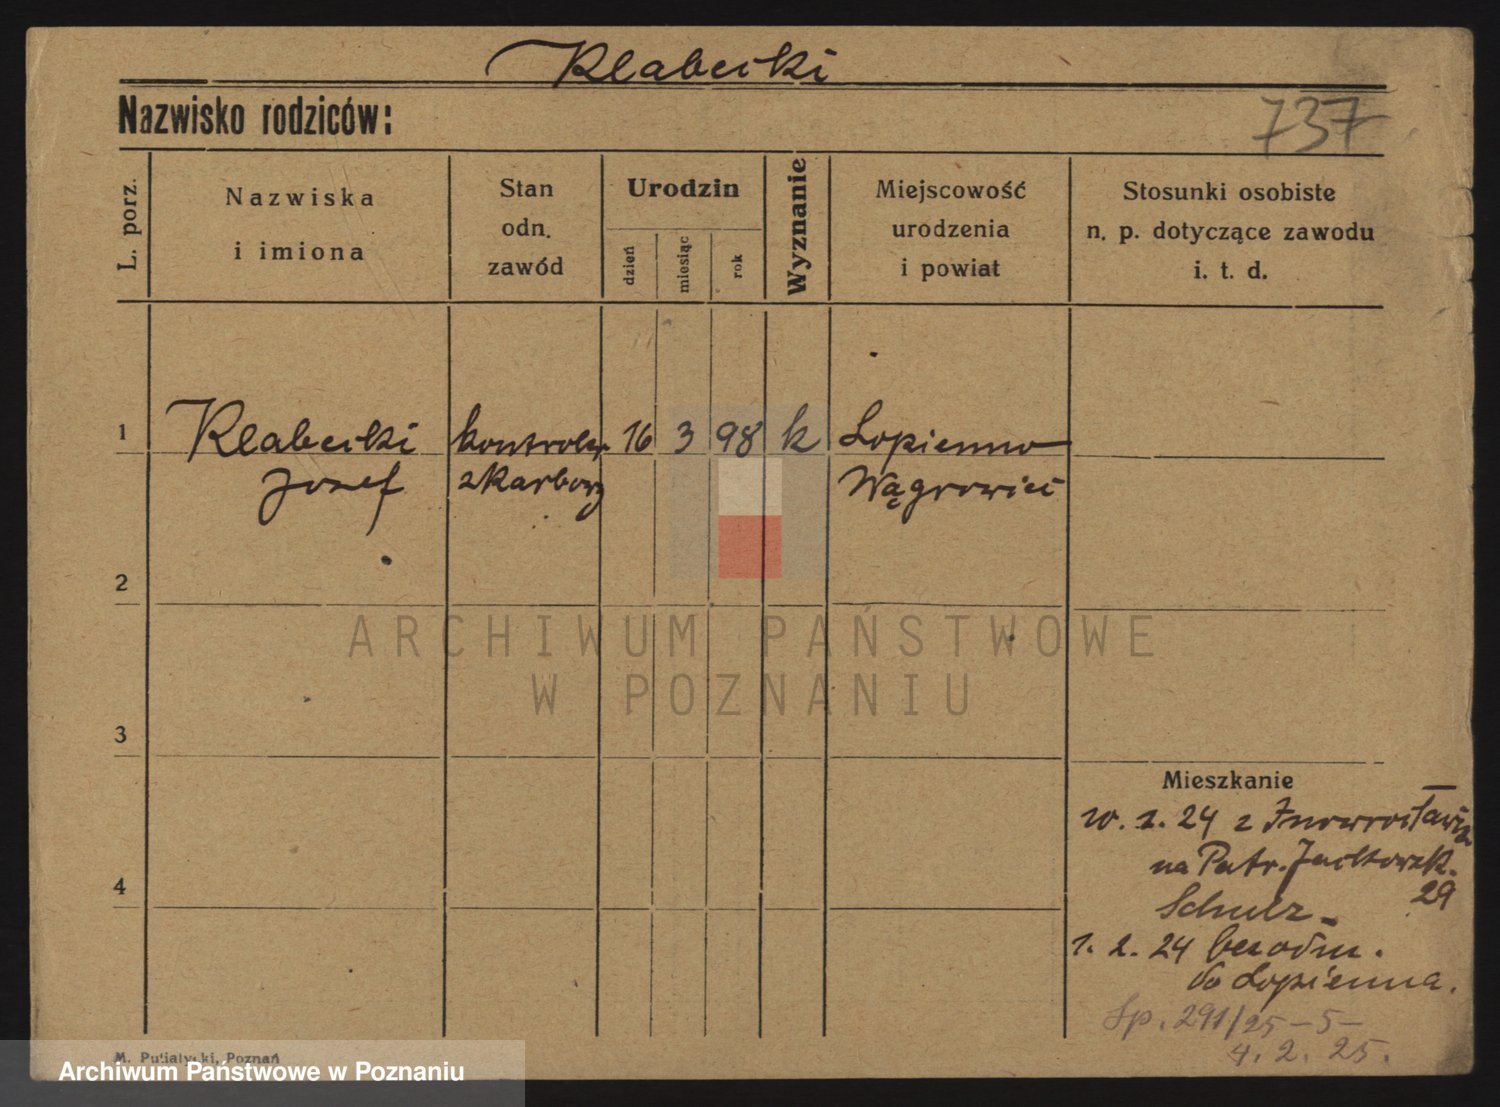 Klabecki
Nazwisko rodziców:
737
L. porz.
Nazwiska
i imiona
Stan
odn.
zawód
Urodzin
dzień
miesiąc
rok
Wyznanie
Miejscowość
urodzenia
i powiat
Stosunki osobiste
n. p. dotyczące zawodu
i. t. d.
1
Klabecki
Josef
kontroler
skarbowy
16
3
98
k
Łopienno
Wągrowiec
2
ARCHIWUM PAŃSTWOWE
W POZNANIU
3
Mieszkanie
24 z Inowrocławia
na Patr. Jackowsk.
29
Schulz
4
1. 2. 24 bez odm.
do Łopienna.
Sp. 291/25 - 5 -
4. 2. 25.
M. Putiatycki, Poznań
Archiwum Państwowe w Poznaniu